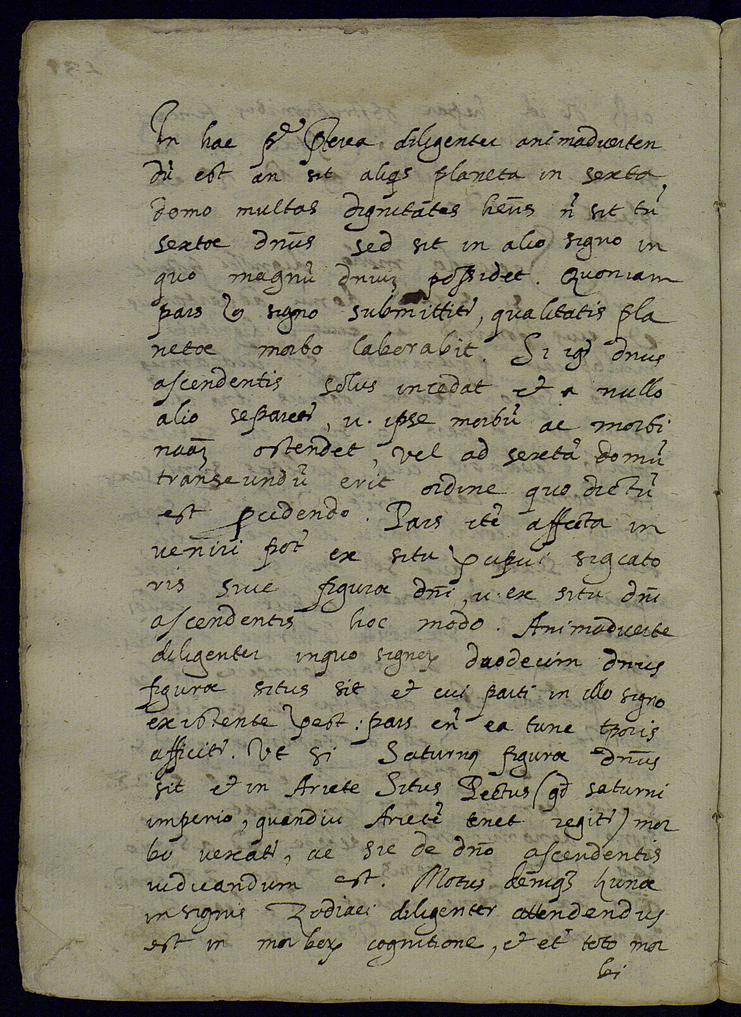 In hac pte Pterea diligenter animaduerten
dũ est an sit aliqs planeta in sexta
domo multas dignitates hens ñ sit tñ
sextae dñus sed sit in alio signo in
quo magnũ dniuz possidet. Quoniam
pars signo submittit', qualitatis pla
netae morbo laborabit. Si igr dnus
ascendentis solus incedat et a nullo
alio separet', u. ipse morbũ ac morbi
naã ostendet, vel ad sextã domũ
transeundũ erit ordine quo dictũ
est pcedendo. Pars itẽ affecta in
veniri pot ex situ sigcato
ris siue figurae dñi, u. ex situ dñi
ascendentis hoc modo. Animaduerte
diligenter inquo signoꝝ duodecim dnus
figurae situs sit et cui parti in illo signo
existente pest: pars eñ ea tunc tporis
afficit'. Vt si Saturnꝰ figurae dñus
sit et in Ariete Situs Pectus (qd saturni
imperio, quandiu Arietẽ tenet regit') mor
bo uexat', ac sic de dño ascendentis
iudicandum est. Motus deniqꝫ Lunae
in signis Zodiaci diligenter attendendus
est in morboꝝ cognitione, et et toto mor
bi